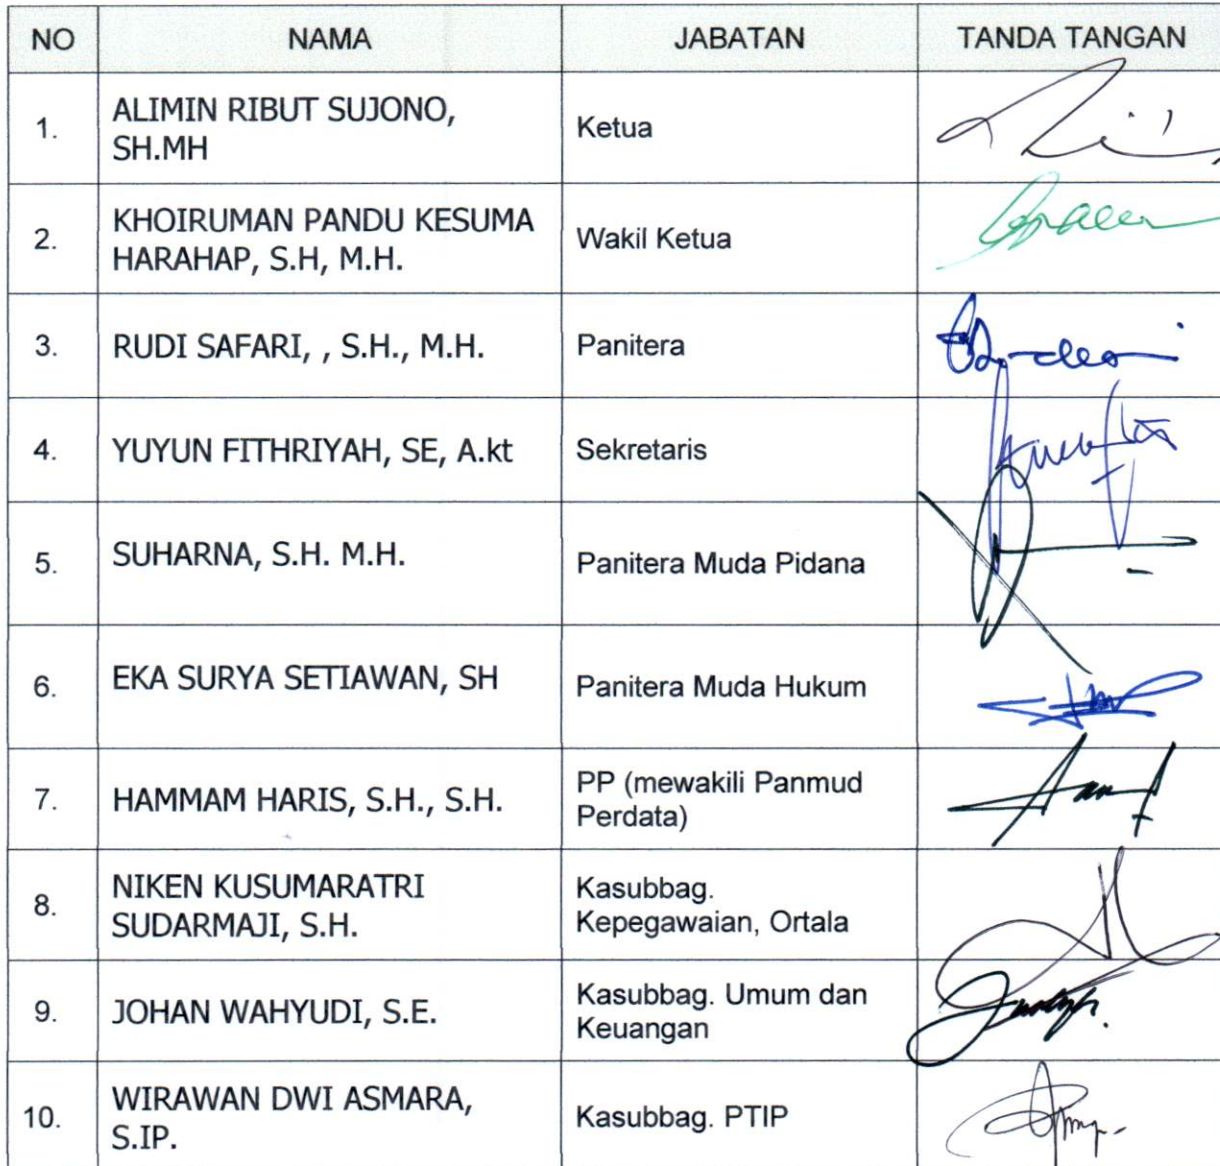 NO NAMA JABATAN TANDA TANGAN
1. ALIMIN RIBUT SUJONO, Ketua
SH.MH
2. KHOIRUMAN PANDU KESUMA Wakil Ketua
HARAHAP, S.H, M.H.
3. RUDI SAFARI, , S.H., M.H. Panitera
4. YUYUN FITHRIYAH, SE, A.kt Sekretaris
5. SUHARNA, S.H. M.H. Panitera Muda Pidana
6. EKA SURYA SETIAWAN, SH Panitera Muda Hukum
7. HAMMAM HARIS, S.H., S.H. PP (mewakili Panmud
Perdata)
8. NIKEN KUSUMARATRI Kasubbag.
SUDARMAJI, S.H. Kepegawaian, Ortala
9. JOHAN WAHYUDI, S.E. Kasubbag. Umum dan
Keuangan
10. WIRAWAN DWI ASMARA, Kasubbag. PTIP
S.IP.